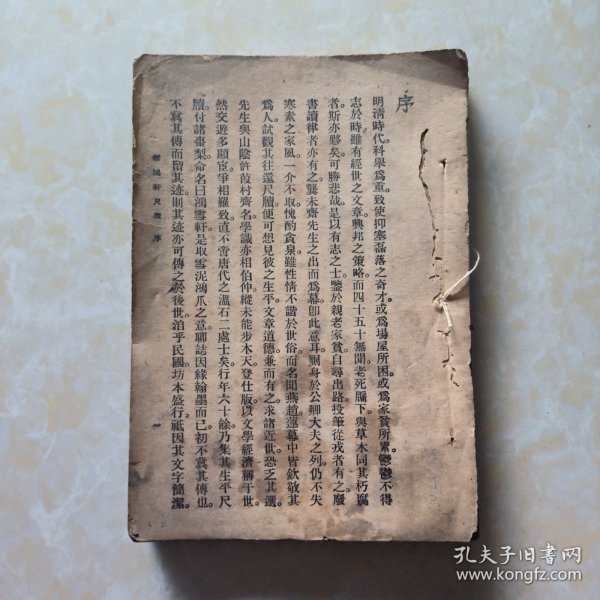 序
明淸時代。科舉爲重。致使抑塞磊落之奇才。或爲場屋所困。或爲家貧所累。鬱鬱不得
志於時。雖有經世之文章。興邦之策略。而四十五十無聞。老死牖下。與草木同其朽腐
者。斯亦夥矣。可勝悲哉。是以有志之士。鑒於親老家貧。自尋出路。投筆從戎者有之。廢
書讀律者亦有之。龔未齋先生之出而爲幕。卽此意耳。厠身於公卿大夫之列。仍不失
寒素之家風。一介不取。愧酌貪泉。雖性情不諧於世俗。而名聞燕趙。蓮幕中皆欽敬其
爲人。試觀其往還尺牘。便可想見彼之生平。文章道德。兼而有之。求諸近世。恐乏其選。
先生與山陰許葭村齊名。學識亦相伯仲。縱未能步木天。登仕版。以文學經濟稱于世。
然交遊多顯宦。爭相羅致。直不啻唐代之溫石二處士矣。行年六十餘。乃集其生平尺
牘。付諸棗梨。命名曰鴻雪軒。是取雪泥鴻爪之意。聊誌因緣翰墨而已。初不冀其傳也。
不冀其傳而留其迹。則其迹亦可傳之於後世。洎乎民國。坊本盛行。祗因其文字簡潔。
雪鴻軒尺牘 序
一
孔夫子旧书网
www.kongfz.com